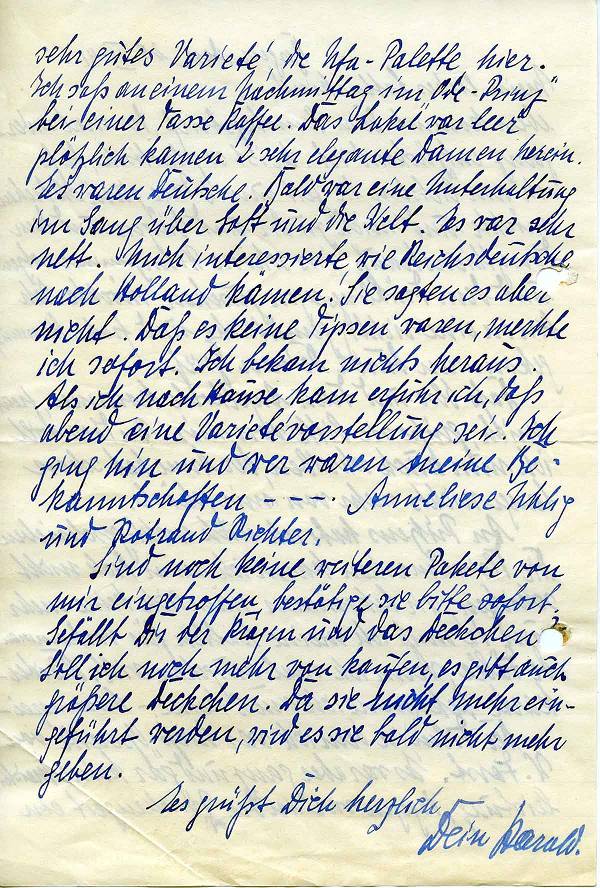 sehr gutes Varieté die Ufa-Palette hier.
Ich saß an einem Nachmittag im "Ode-Prinz"
bei einer Tasse Kaffee. Das Lokal war leer
plötzlich kamen 2 sehr elegante Damen herein.
Es waren Deutsche. Bald war eine Unterhaltung
im Gang über Gott und die Welt. Es war sehr
nett. Mich interessierte, wie Reichsdeutsche
nach Holland kämen. Sie sagten es aber
nicht. Daß es keine Tipsen waren, merkte
ich sofort. Ich bekam nichts heraus.
Als ich nach Hause kam erfuhr ich, daß
abend eine Varietevorstellung sei. Ich
ging hin und wer waren meine Be-
kanntschaften - - - . Anneliese Uhlig
und Rotraud Richter.
Sind noch keine weiteren Pakete von
mir eingetroffen, bestätige sie bitte sofort.
Gefällt Dir der Kragen und das Deckchen?
Soll ich noch mehr von kaufen, es gibt auch
größere Deckchen. Da sie nicht mehr ein-
geführt werden, wird es sie bald nicht mehr
geben.
Es grüßt Dich herzlich
Dein Harald.